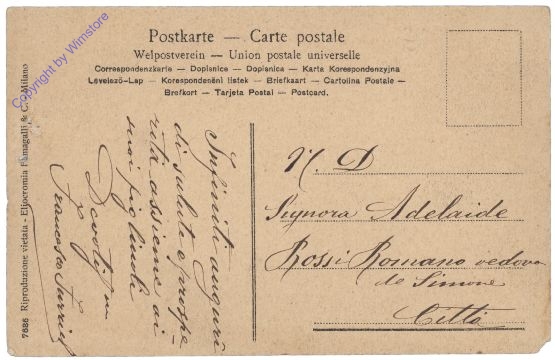 Postkarte — Carte postale
Weltpostverein — Union postale universelle
Correspondenzkarte — Dopisnice — Dopisnica — Karta Korespondenzyjna
Levelező-Lap — Korespondenčni listek — Briefkaart — Cartolina Postale —
Brefkort — Tarjeta Postal — Postcard.
Copyright by Wimstore
7686 Riproduzione vietata - Eliocromia Fumagalli & C. - Milano
Infiniti auguri
di salute e prospe-
rità assieme ai
suoi figliuoli
Devotissimo
Francesco
N. D.
Signora Adelaide
Rossi Romano vedova
de Simone
Città